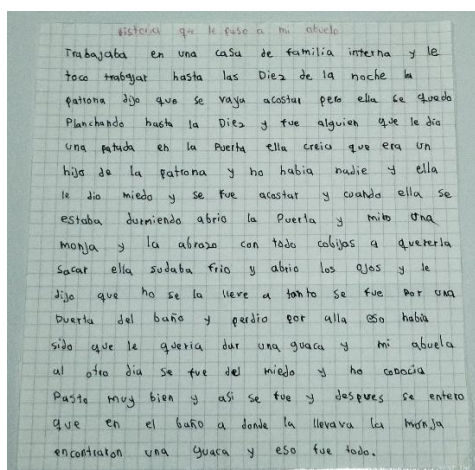 Historia que le paso a mi abuelo
Trabajaba en una casa de familia interna y le
toco trabajar hasta las Diez de la noche la
patrona dijo que se vaya acostar pero ella se quedo
Planchando hasta la Diez y fue alguien que le dio
una patada en la Puerta ella creia que era un
hijo de la patrona y no habia nadie y ella
le dio miedo y se fue acostar y cuando ella se
estaba durmiendo abrio la Puerta y miro una
monja y la abrazo con todo cobijas a quererla
sacar ella sudaba frio y abrio los ojos y le
dijo que no se la lleve a tanto se fue por una
puerta del baño y perdio por alla eso habia
sido que le queria dar una guaca y mi abuela
al otro dia se fue del miedo y no conocia
Pasto muy bien y asi se fue y despues se entero
que en el baño a donde la llevava la monja
encontraron una guaca y eso fue todo.